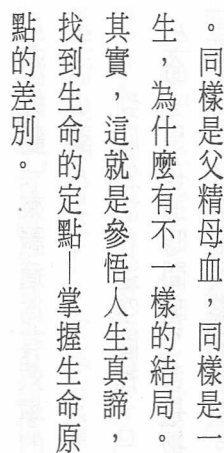 。同樣是父精母血，同樣是一
生，為什麼有不一樣的結局。
其實，這就是參悟人生真諦，
找到生命的定點—掌握生命原
點的差別。